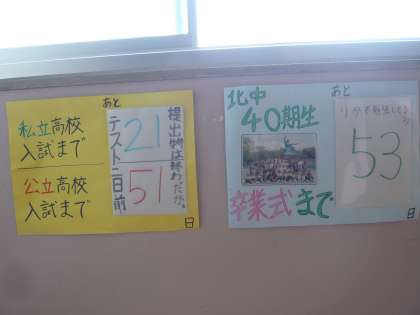 あと
私立高校
入試まで
21
公立高校
入試まで
51
提出物は終わったか。
テスト二日前
日
北中
あと
40期生
53
卒業式まで
日